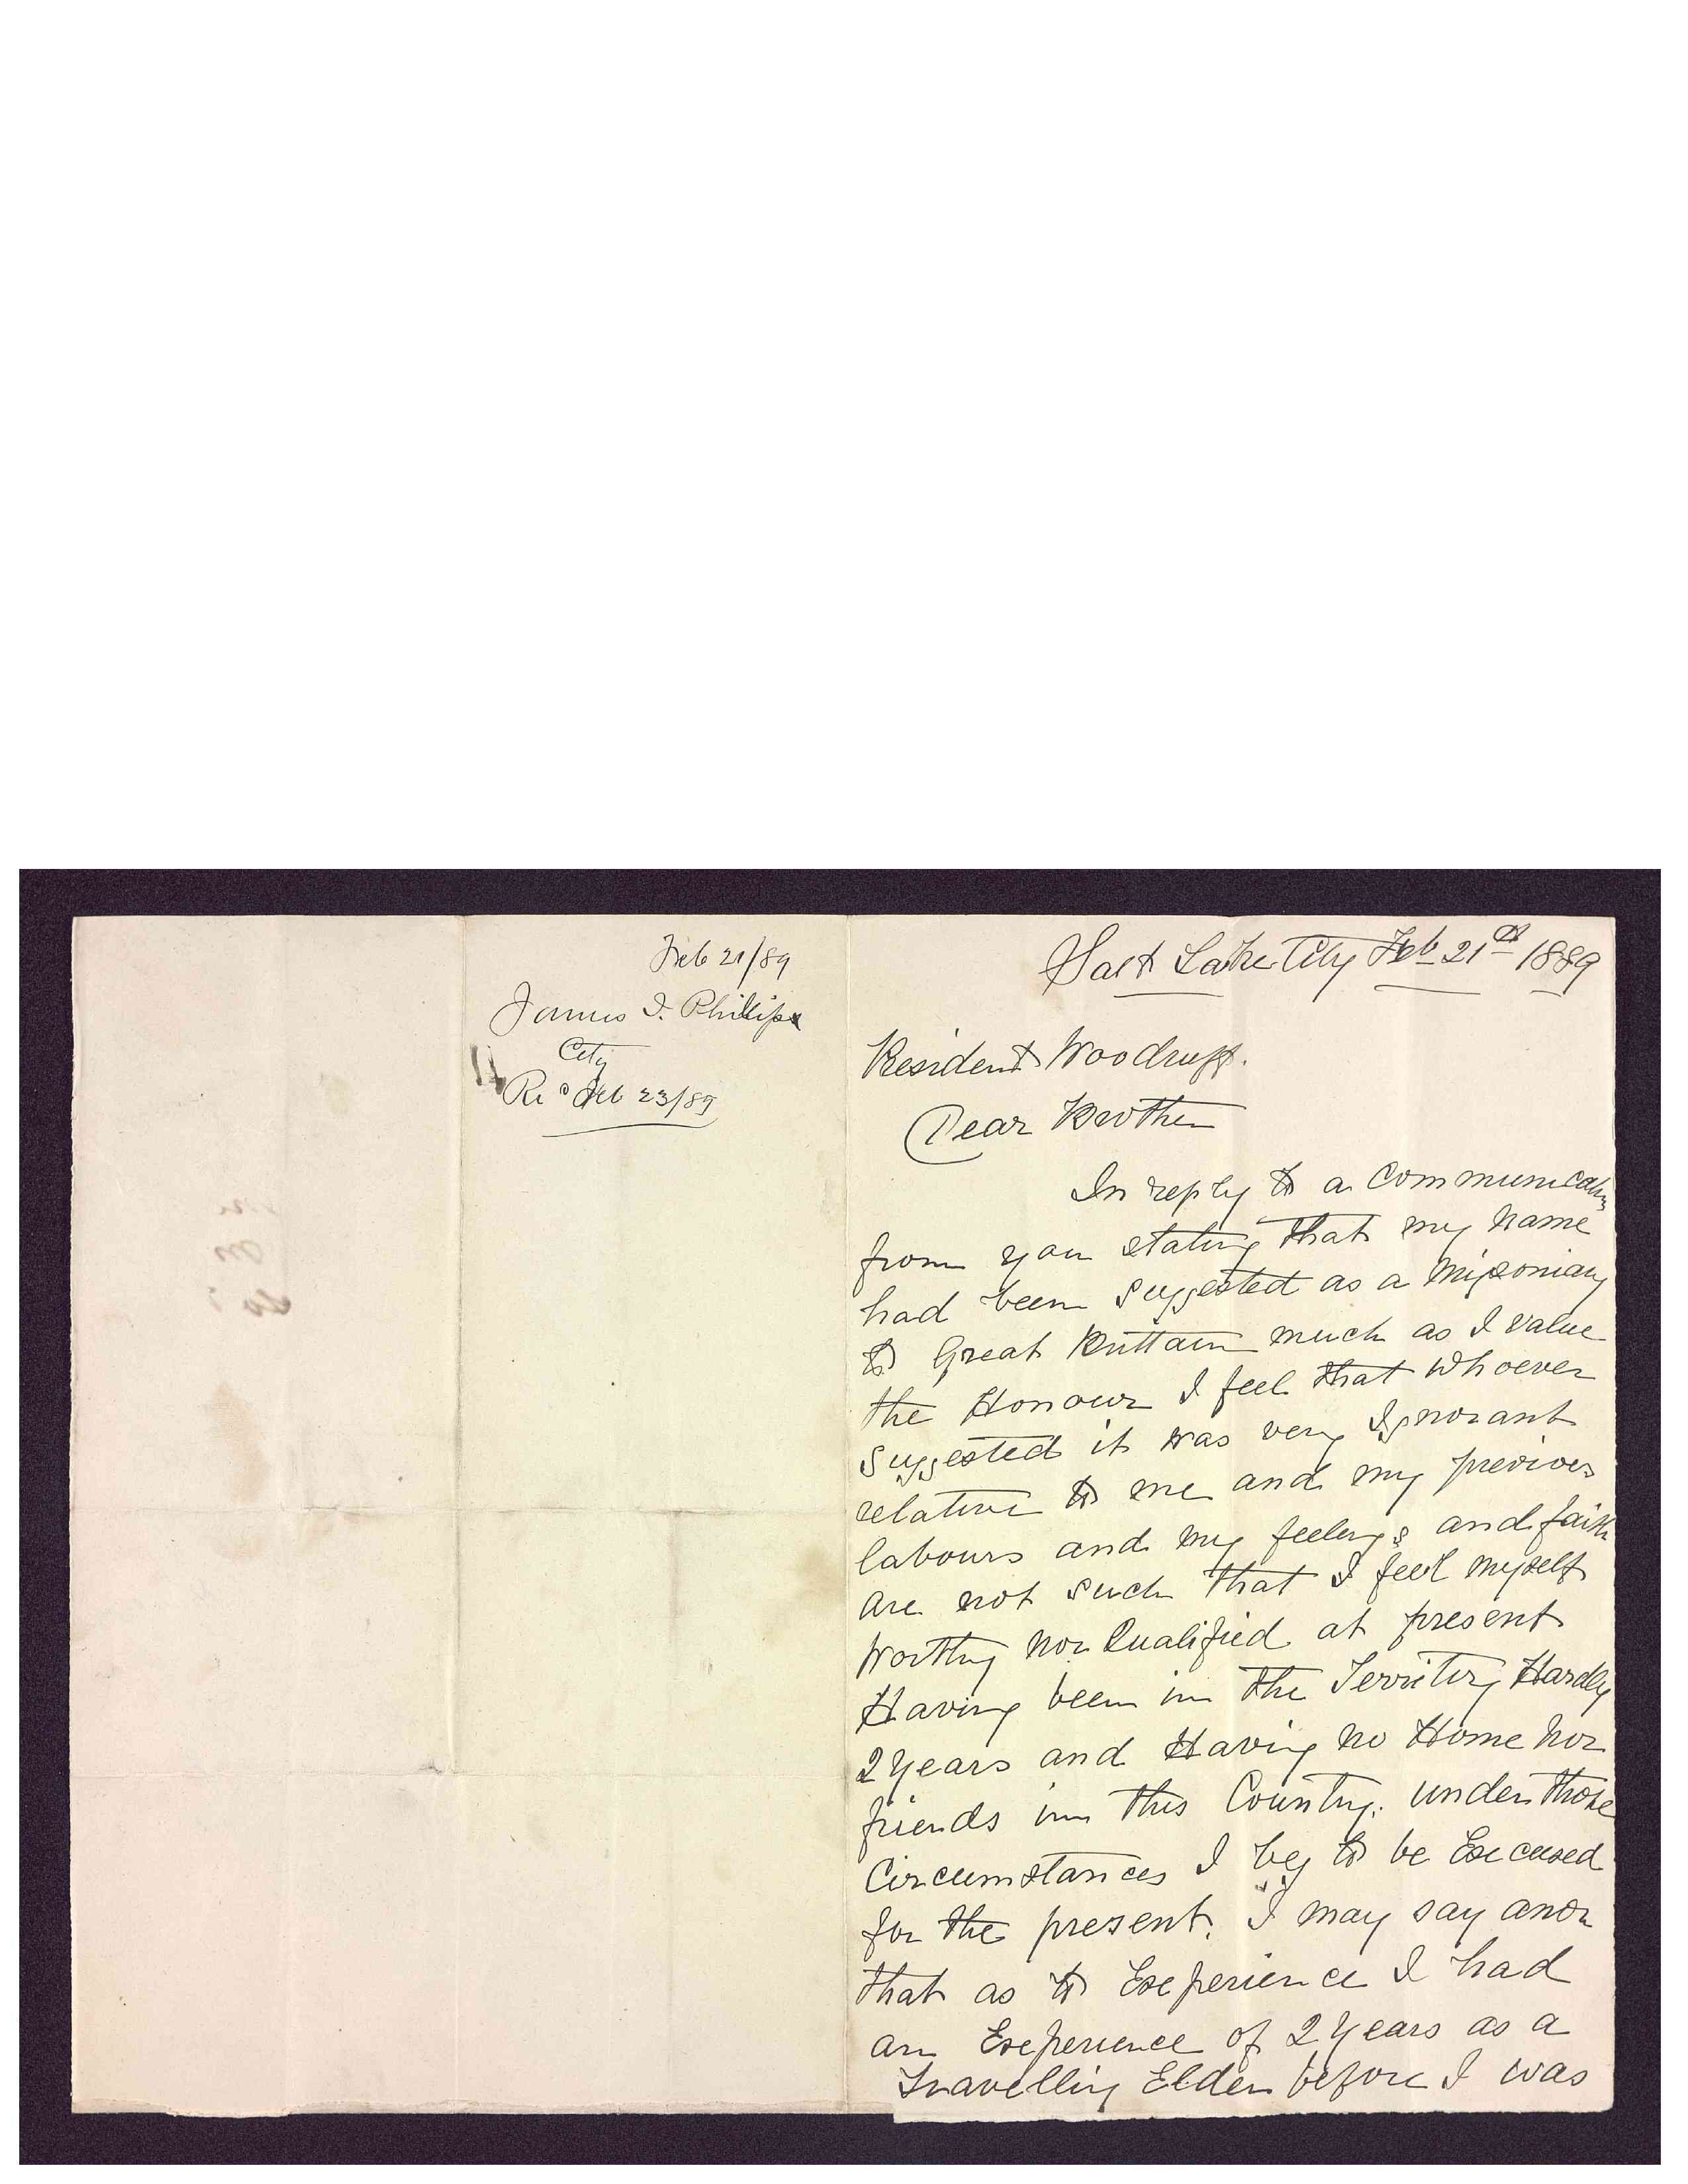 Feb 21/89
James I. Phillips
City
Rec Feb 23/89
Salt Lake City Feb 21st 1889
President Woodruff.
Dear Brother
In reply to a Communication
from you stating that my name
had been suggested as a Missoniary
to Great Brittain much as I value
the Honour I feel that whoever
suggested it was very Ignorant
relative to me and my previous
labours and my feelings and faith
are not such that I feel myself
worthy nor Qualified at present
Having been in the Territory Hardly
2 years and Having no Home nor
friends in this Country. under those
Circumstances I beg to be Excused
for the present. I may say
that as to Experience I had
an Experience of 2 years as a
Travelling Elder before I was